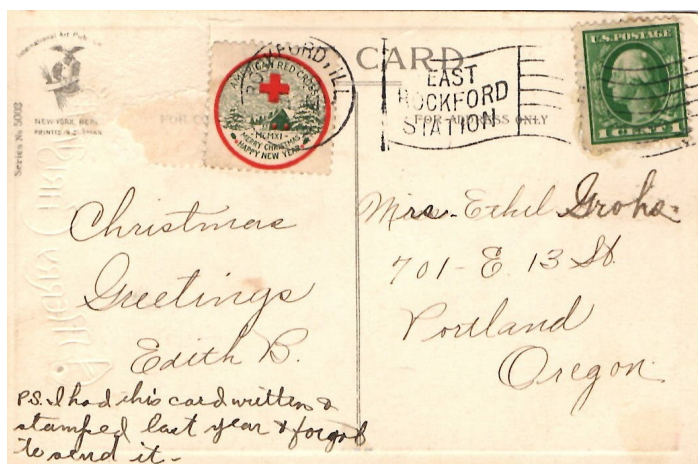 International Art Pub. Co.
NEW YORK, BERLIN
PRINTED IN GERMAN
Series No 5002
AMERICAN RED CROSS
MCMXI
MERRY CHRISTMAS
HAPPY NEW YEAR
ROCKFORD, ILL.
CARD
EAST
ROCKFORD
STATION
FOR ADDRESS ONLY
U.S. POSTAGE
1 CENT 1
Christmas
Greetings
Edith B.
P.S. I had this card written &
stamped last year & forgot
to send it -
Mrs. Ethel Grohs.
701 - E. 13 St.
Portland
Oregon.